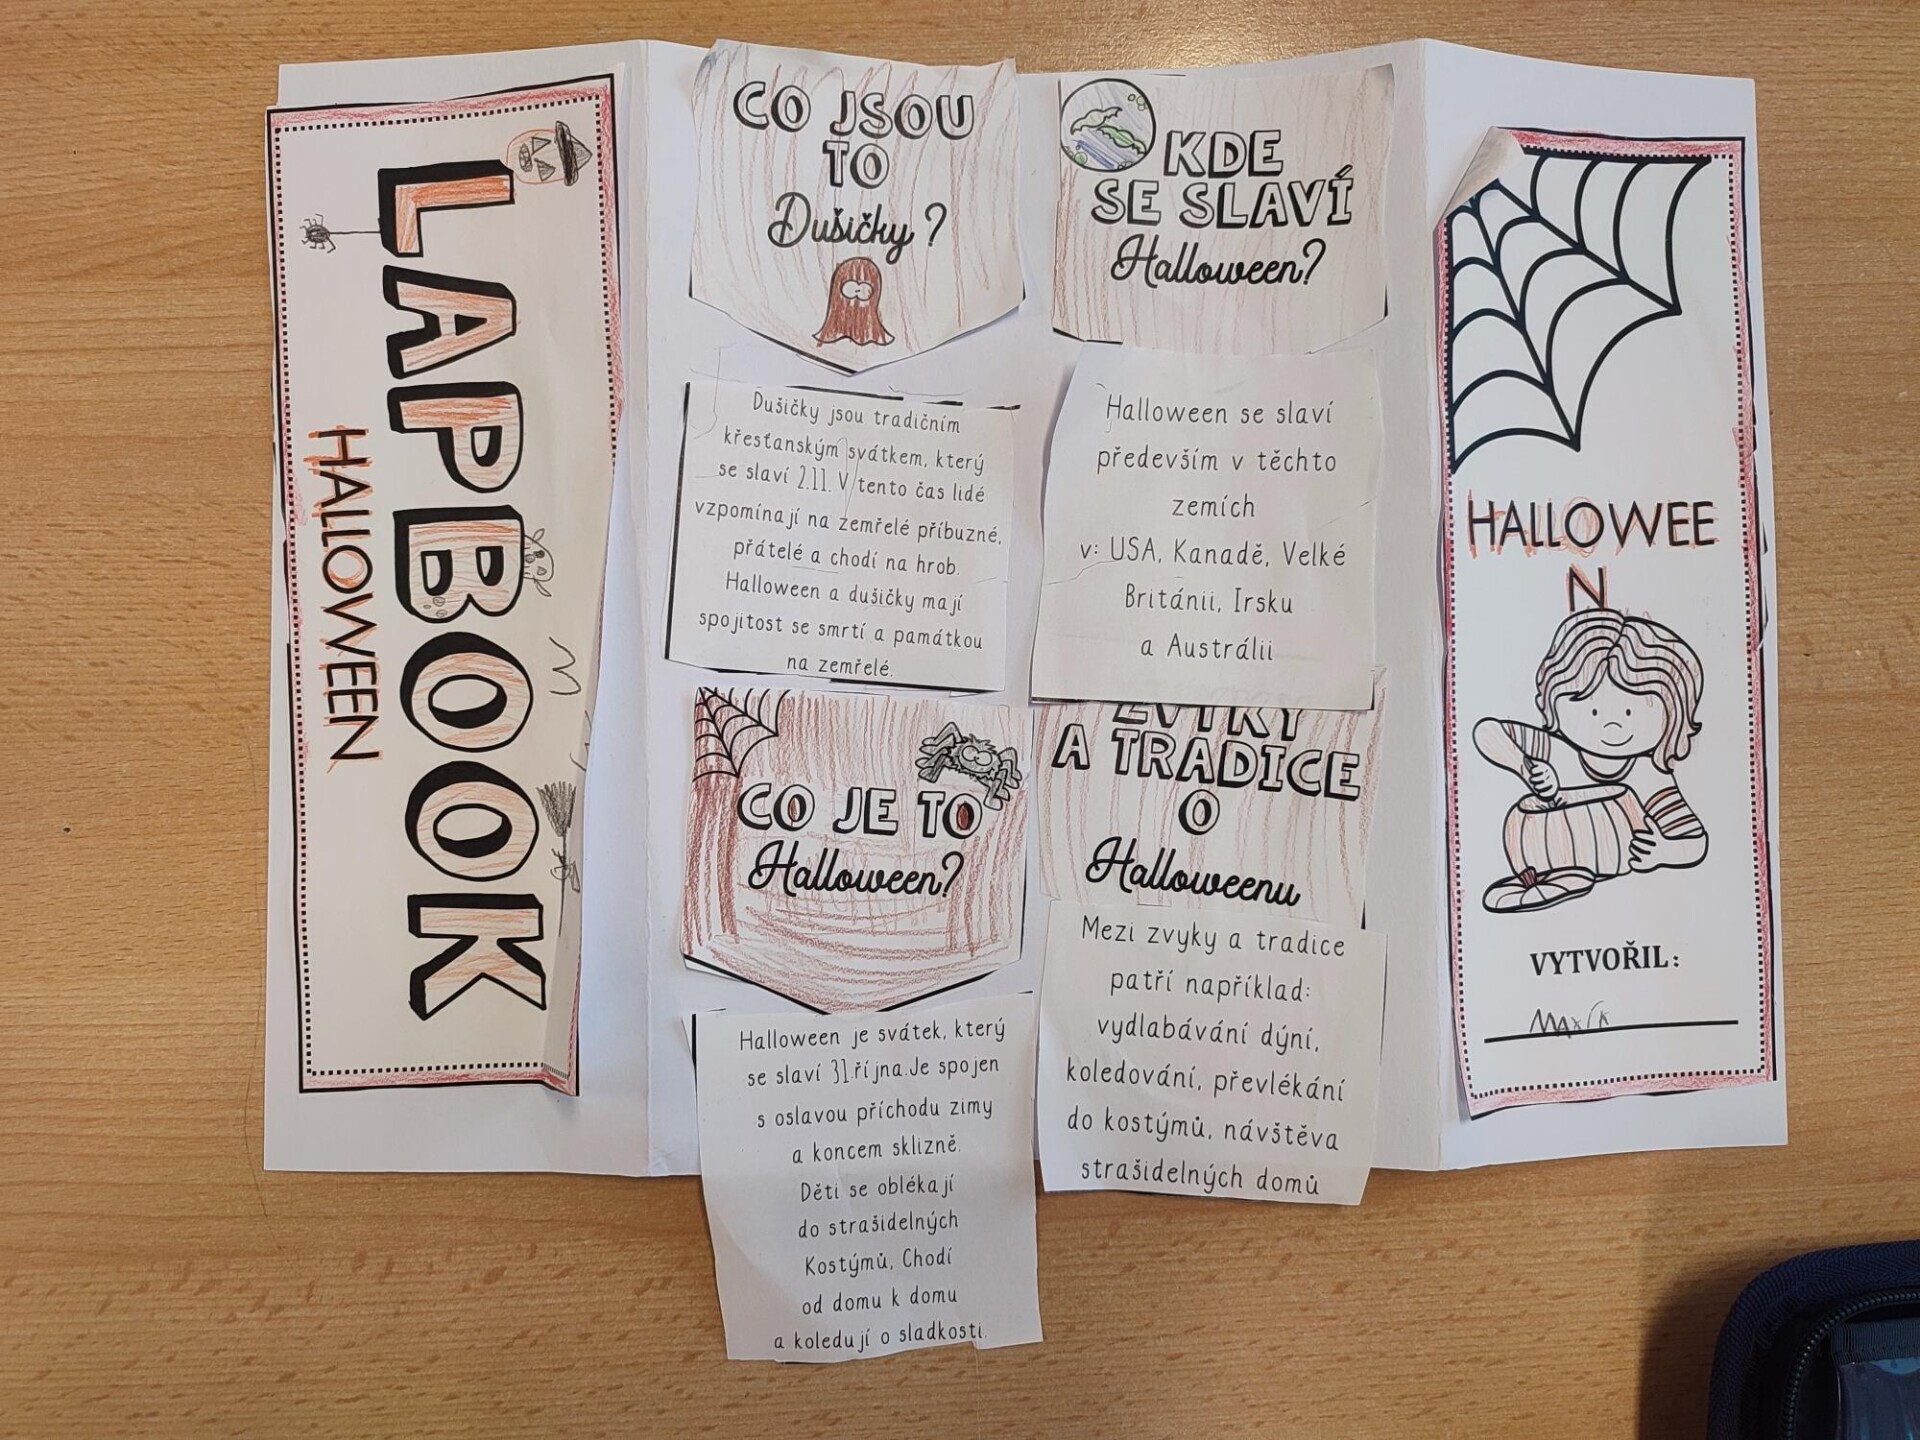 LAPBOOK
HALLOWEEN
CO JSOU
TO
Dušičky?
Dušičky jsou tradičním
křesťanským svátkem, který
se slaví 2.11. V tento čas lidé
vzpomínají na zemřelé příbuzné,
přátelé a chodí na hrob.
Halloween a dušičky mají
spojitost se smrtí a památkou
na zemřelé.
CO JE TO
Halloween?
Halloween je svátek, který
se slaví 31.října.Je spojen
s oslavou příchodu zimy
a koncem sklizně.
Děti se oblékají
do strašidelných
Kostýmů, Chodí
od domu k domu
a koledují o sladkosti.
KDE
SE SLAVÍ
Halloween?
Halloween se slaví
především v těchto
zemích
v: USA, Kanadě, Velké
Británii, Irsku
a Austrálii
ZVYKY
A TRADICE
O
Halloweenu
Mezi zvyky a tradice
patří například:
vydlabávání dýní,
koledování, převlékání
do kostýmů, návštěva
strašidelných domů
HALLOWEE
N
VYTVOŘIL: